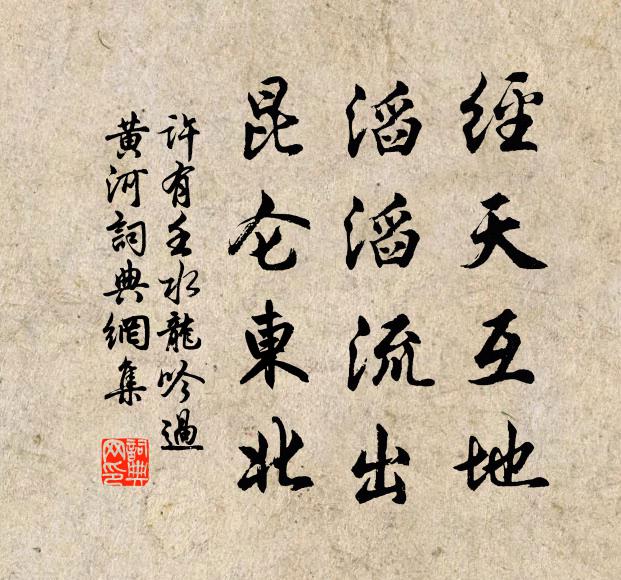 經天互地
滔滔流出
昆仑東北
許有壬水龍吟過
黄河詞典網集
詞典
网印